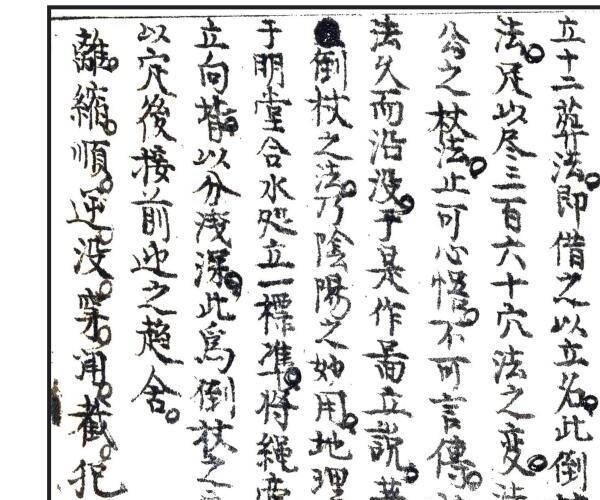 立十二葬法即借之以立名此倒
法足以尽三百六十穴法之变法
公之杖法止可心悟不可言傳
法久而沿没于是作畵立説
倒杖之法乃陰陽之妙用地理
于明堂合水処立一標準将繩
立向皆以分浅深此爲倒杖之
以定後接前迎之趋舍
離縮順逆没穿開截犯